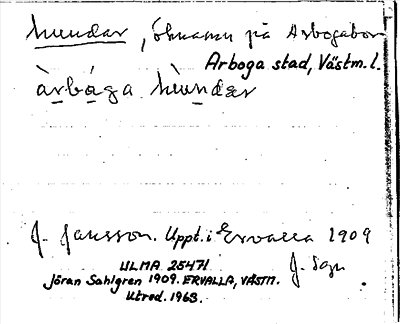 hundar, öknamn på Arbogabor
Arboga stad, Västm. l.
àrbága hùndar
J. Jansson. Uppt. i Ervalla 1909
ULMA 25471 J. Sgn
Jöran Sahlgren 1909. ERVALLA, VÄSTM.
Utred. 1963.